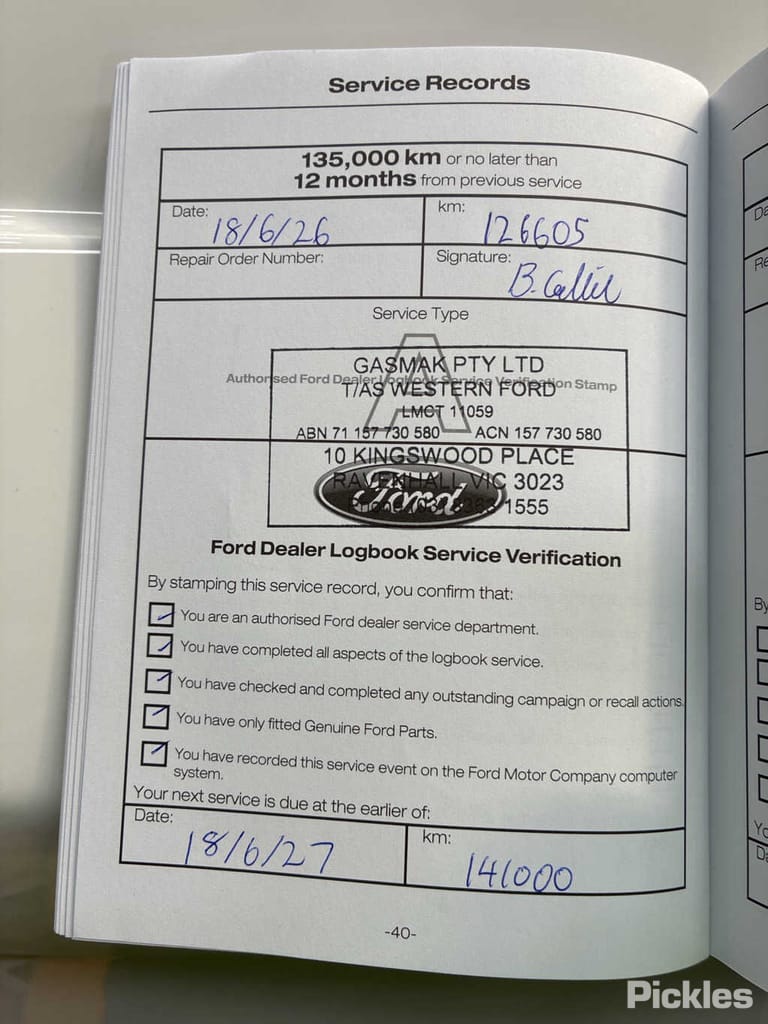 Service Records
135,000 km or no later than
12 months from previous service
Date: 18/6/26
km: 126605
Repair Order Number:
Signature: B.
Service Type
A
Authorised Ford Dealer Logbook Service Verification Stamp
GASMAK PTY LTD
T/AS WESTERN FORD
LMCT 11059
ABN 71 157 730 580 ACN 157 730 580
10 KINGSWOOD PLACE
RAVENHALL VIC 3023
Phone (03) 1555
Ford
Ford Dealer Logbook Service Verification
By stamping this service record, you confirm that:
You are an authorised Ford dealer service department.
You have completed all aspects of the logbook service.
You have checked and completed any outstanding campaign or recall actions.
You have only fitted Genuine Ford Parts.
You have recorded this service event on the Ford Motor Company computer
system.
Your next service is due at the earlier of:
Date: 18/6/27
km: 141000
-40-
Pickles